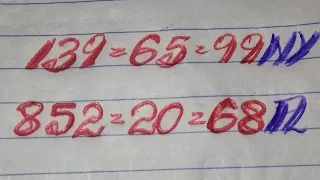 139=65=99NY
852=20=68IL